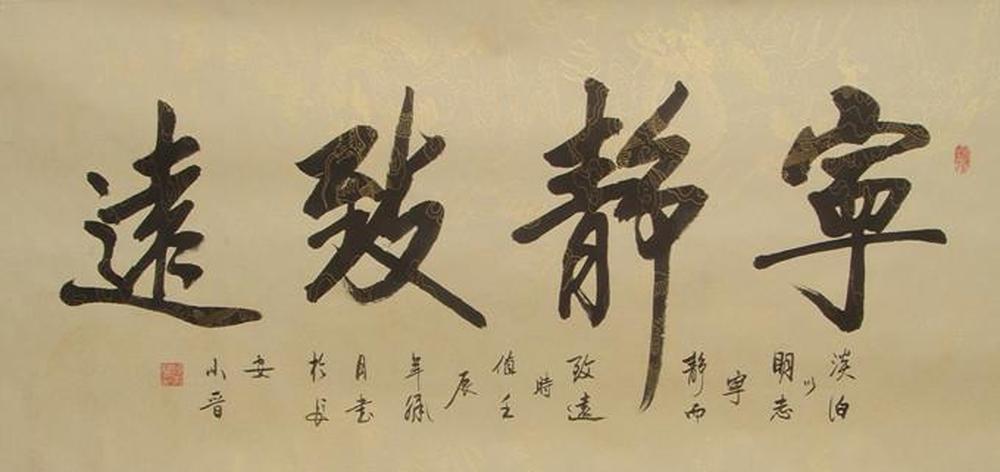 寧靜致遠
淡泊
以
明志
寧
靜而
致遠
時
值壬
辰
年
月書
於長
安
小晋